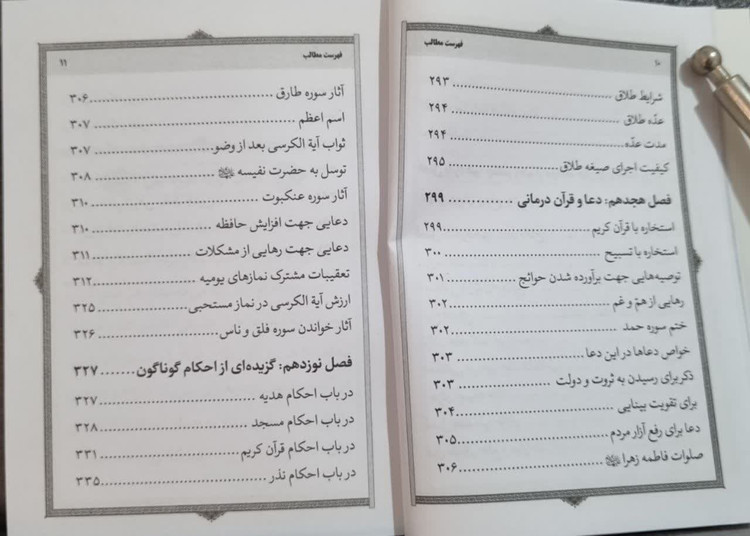 فهرست مطالب ۱۰
شرایط طلاق ........ ۲۹۳
عدّه طلاق ........ ۲۹۴
مدت عدّه ........ ۲۹۴
کیفیت اجرای صیغه طلاق ........ ۲۹۵
فصل هجدهم: دعا و قرآن درمانی ........ ۲۹۹
استخاره با قرآن کریم ........ ۲۹۹
استخاره با تسبیح ........ ۳۰۰
توصیه‌هایی جهت برآورده شدن حوائج ........ ۳۰۱
رهایی از همّ و غم ........ ۳۰۲
ختم سوره حمد ........ ۳۰۲
خواص دعاها در این دعا ........ ۳۰۳
ذکر برای رسیدن به ثروت و دولت ........ ۳۰۳
برای تقویت بینایی ........ ۳۰۴
دعا برای رفع آزار مردم ........ ۳۰۵
صلوات فاطمه زهرا ........ ۳۰۶
فهرست مطالب ۱۱
آثار سوره طارق ........ ۳۰۶
اسم اعظم ........ ۳۰۷
ثواب آیة الکرسی بعد از وضو ........ ۳۰۷
توسل به حضرت نفیسه ........ ۳۰۸
آثار سوره عنکبوت ........ ۳۱۰
دعایی جهت افزایش حافظه ........ ۳۱۰
دعایی جهت رهایی از مشکلات ........ ۳۱۱
تعقیبات مشترک نمازهای یومیه ........ ۳۱۲
ارزش آیة الکرسی در نماز مستحبی ........ ۳۲۵
آثار خواندن سوره فلق و ناس ........ ۳۲۶
فصل نوزدهم: گزیده‌ای از احکام گوناگون ........ ۳۲۷
در باب احکام هدیه ........ ۳۲۷
در باب احکام مسجد ........ ۳۲۸
در باب احکام قرآن کریم ........ ۳۳۱
در باب احکام نذر ........ ۳۳۵